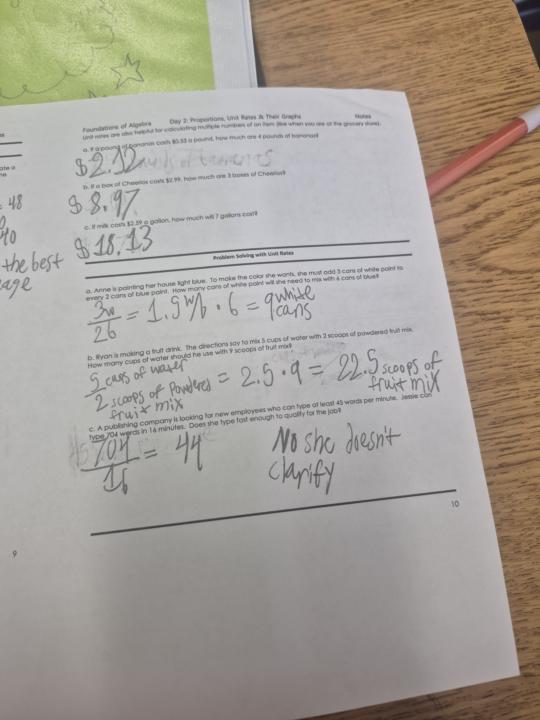 Foundations of Algebra Day 2: Proportions, Unit Rates & Their Graphs Notes
Unit rates are also helpful for calculating multiple numbers of an item (like when you are at the grocery store).
a. If a pound of bananas costs $0.53 a pound, how much are 4 pounds of bananas?
$2.12
b. If a box of Cheerios costs $2.99, how much are 3 boxes of Cheerios?
$8.97
c. If milk costs $2.59 a gallon, how much will 7 gallons cost?
$18.13
48
40
the best
Problem Solving with Unit Rates
a. Anne is painting her house light blue. To make the color she wants, she must add 3 cans of white paint to
every 2 cans of blue paint. How many cans of white paint will she need to mix with 6 cans of blue?
3w/2b = 1.5w/b · 6 = 9 white cans
b. Ryan is making a fruit drink. The directions say to mix 5 cups of water with 2 scoops of powdered fruit mix.
How many cups of water should he use with 9 scoops of fruit mix?
5 cups of water
2 scoops of Powdered = 2.5 · 9 = 22.5 scoops of
fruit mix fruit mix
c. A publishing company is looking for new employees who can type at least 45 words per minute. Jessie can
type 704 words in 16 minutes. Does she type fast enough to qualify for the job?
704/16 = 44 No she doesn't
clarify
10
9